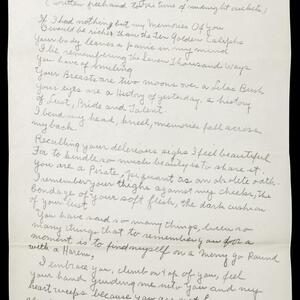 (written freehand to the tune of midnight crickets)
If I had nothing but my Memories Of You
I would be richer than the Ten Golden Caliphs
Your body leaves a fame in my mind
I lie remembering the Seven Thousand Ways
You have of Smiling
Your Breasts are two moons over a Lilac Bush
Your eyes are a History of yesterday, a history
of Lust, Bride and Talent
I bend my head, kneel, memories fall across
my back.
Recalling your delicious sighs I feel beautiful
For to kindle so much beauty is to share it.
You are a Pirate, poignant as an obsolete oath.
I remember your thighs against my cheeks, the
Bondage of your soft flesh, the dark cushion
of your lust
You have said so many things, been so
many things that to remember you for a
moment is to find myself on a Merry go Round
with a Harem,
I embrace you, climb on top of you, feel
your hand guiding me into you and my
heart weeps because you are